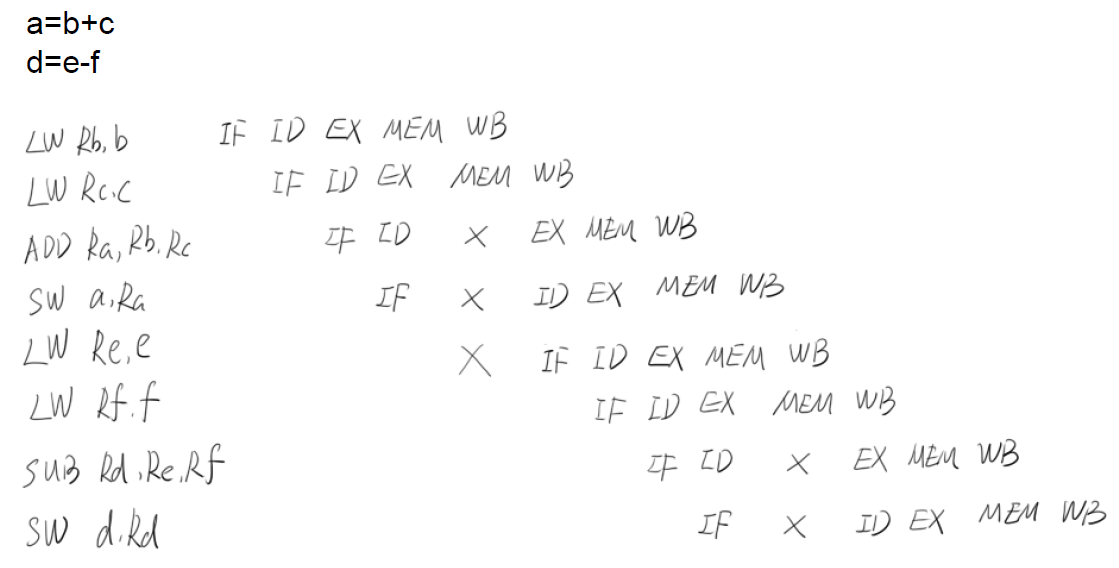 a=b+c
d=e-f
LW Rb, b IF ID EX MEM WB
LW Rc, c IF ID EX MEM WB
ADD Ra, Rb, Rc IF ID X EX MEM WB
SW a, Ra IF X ID EX MEM WB
LW Re, e X IF ID EX MEM WB
LW Rf, f IF ID EX MEM WB
SUB Rd, Re, Rf IF ID X EX MEM WB
SW d, Rd IF X ID EX MEM WB